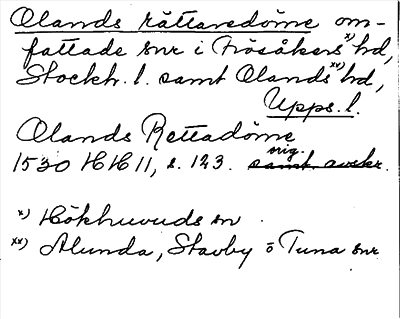 Olands rättaredöme om-
fattade snr i Frösåkers x) hd,
Stockh. l. samt Olands xx) hd,
Upps. l.
Olands Rettadöme
1530 HH 11, s. 123. samt avskr.
x) Hökhuvuds sn
xx) Alunda, Stavby o Tuna snr